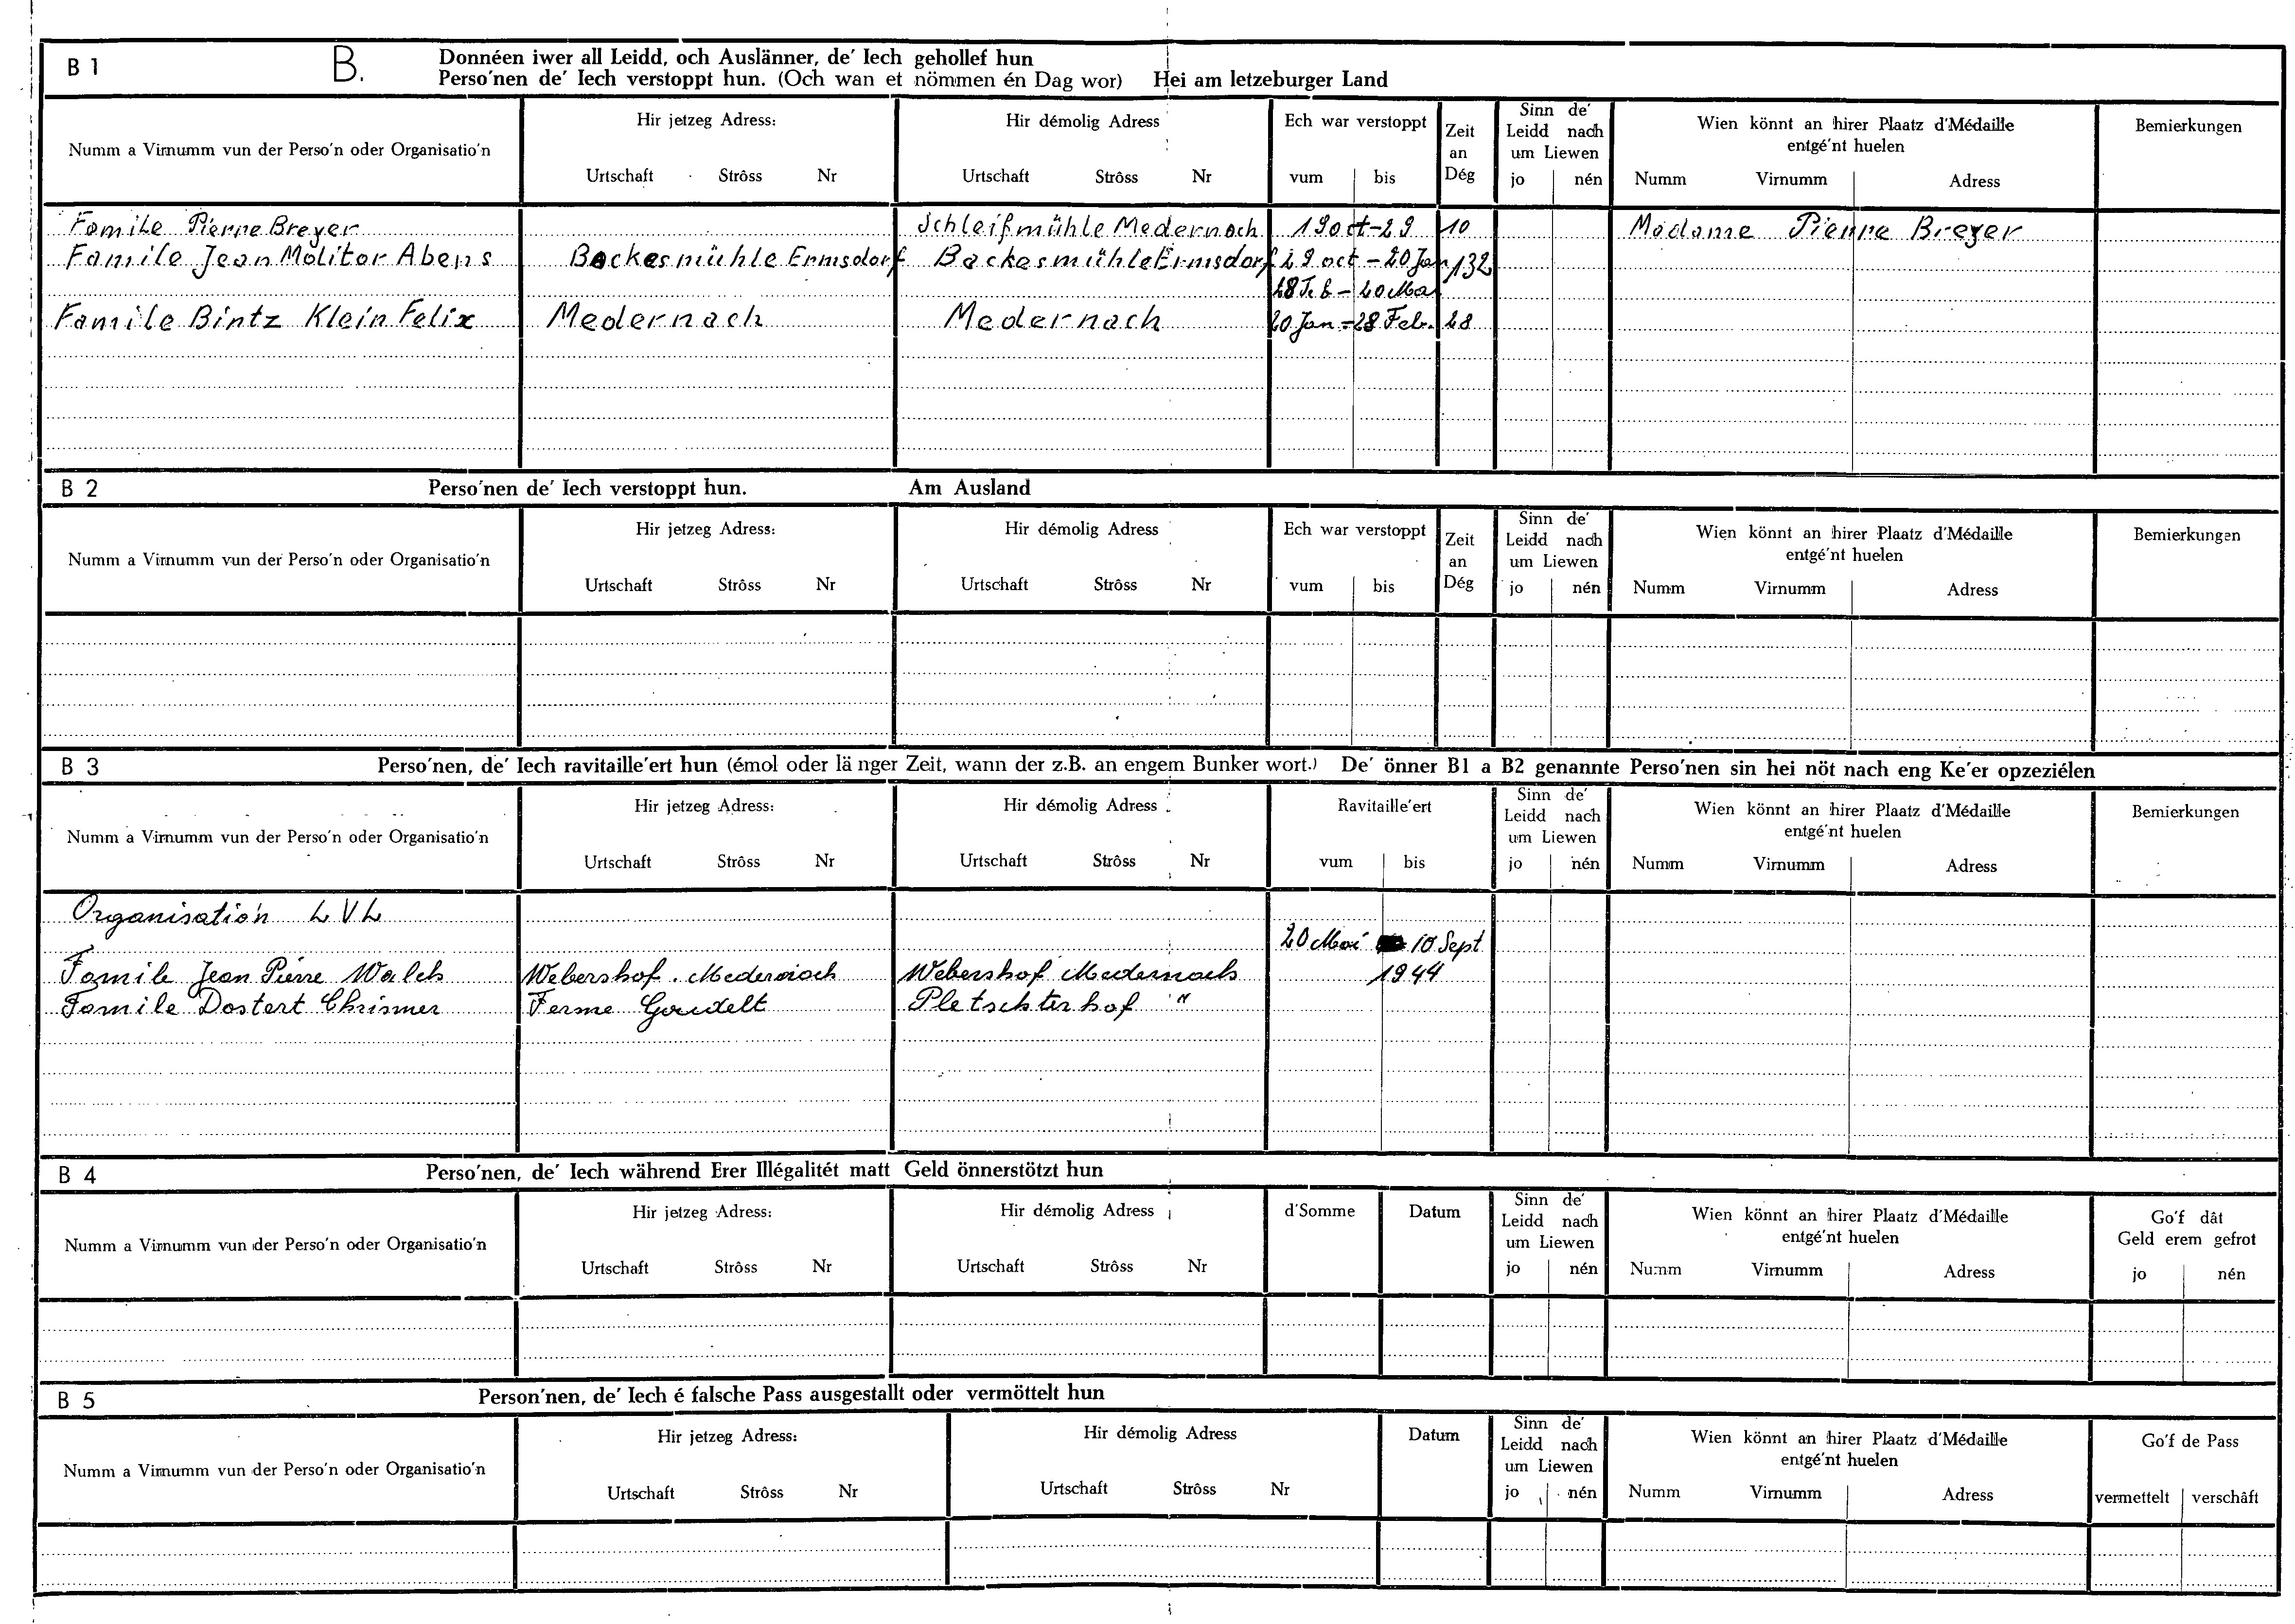 B 1 B. Donnéen iwer all Leidd, och Auslänner, de' Iech gehollef hun
Perso'nen de' Iech verstoppt hun. (Och wan et nömmen én Dag wor) Hei am letzeburger Land
Numm a Virnumm vun der Perso'n oder Organisatio'n
Hir jetzeg Adress:
Urtschaft Strôss Nr
Hir démolig Adress
Urtschaft Strôss Nr
Ech war verstoppt
vum bis
Zeit
an
Dég
Sinn de'
Leidd nach
um Liewen
jo nén
Wien könnt an hirer Plaatz d'Médaille
entgé'nt huelen
Numm Virnumm Adress
Bemierkungen
Famile Pierre Breyer Schleifmühle Medernach 19 oct-29 10 Madame Pierre Breyer
Famile Jean Molitor Abens Backesmühle Ermsdorf Backesmühle Ermsdorf 29 oct - 20 Jan 132
28 Feb - 20 Mai
Famile Bintz Klein Felix Medernach Medernach 20 Jan - 28 Feb. 28
B 2 Perso'nen de' Iech verstoppt hun. Am Ausland
Numm a Virnumm vun der Perso'n oder Organisatio'n
Hir jetzeg Adress:
Urtschaft Strôss Nr
Hir démolig Adress
Urtschaft Strôss Nr
Ech war verstoppt
vum bis
Zeit
an
Dég
Sinn de'
Leidd nach
um Liewen
jo nén
Wien könnt an hirer Plaatz d'Médaille
entgé'nt huelen
Numm Virnumm Adress
Bemierkungen
B 3 Perso'nen, de' Iech ravitaille'ert hun (émol oder länger Zeit, wann der z.B. an engem Bunker wort.) De' önner B1 a B2 genannte Perso'nen sin hei nöt nach eng Ke'er opzeziélen
Numm a Virnumm vun der Perso'n oder Organisatio'n
Hir jetzeg Adress:
Urtschaft Strôss Nr
Hir démolig Adress
Urtschaft Strôss Nr
Ravitaille'ert
vum bis
Sinn de'
Leidd nach
um Liewen
jo nén
Wien könnt an hirer Plaatz d'Médaille
entgé'nt huelen
Numm Virnumm Adress
Bemierkungen
Organisation LVL
20 Mai 10 Sept
Famile Jean Pierre Walch Webershof. Medernach Webershof Medernach 1944
Famile Dostert Chrismer Ferme Goudelt Pletschterhof "
B 4 Perso'nen, de' Iech während Erer Illégalitét matt Geld önnerstötzt hun
Numm a Virnumm vun der Perso'n oder Organisatio'n
Hir jetzeg Adress:
Urtschaft Strôss Nr
Hir démolig Adress
Urtschaft Strôss Nr
d'Somme
Datum
Sinn de'
Leidd nach
um Liewen
jo nén
Wien könnt an hirer Plaatz d'Médaille
entgé'nt huelen
Numm Virnumm Adress
Go'f dât
Geld erem gefrot
jo nén
B 5 Person'nen, de' Iech é falsche Pass ausgestallt oder vermöttelt hun
Numm a Virnumm vun der Perso'n oder Organisatio'n
Hir jetzeg Adress:
Urtschaft Strôss Nr
Hir démolig Adress
Urtschaft Strôss Nr
Datum
Sinn de'
Leidd nach
um Liewen
jo nén
Wien könnt an hirer Plaatz d'Médaille
entgé'nt huelen
Numm Virnumm Adress
Go'f de Pass
vermettelt verschâft